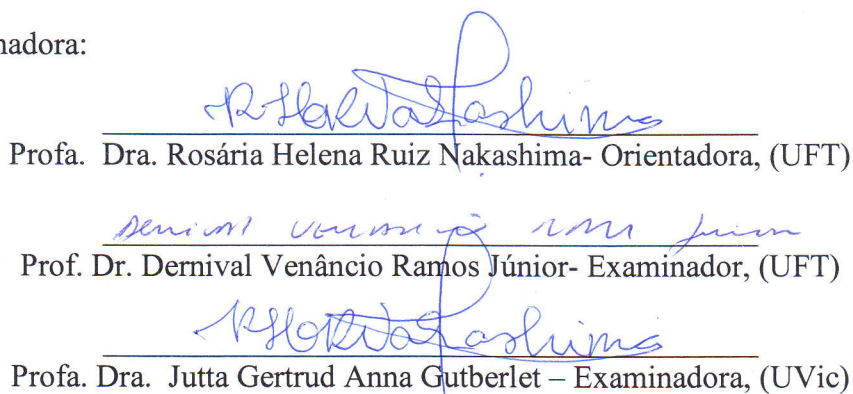 nadora:
RHRNakashima
Profa. Dra. Rosária Helena Ruiz Nakashima- Orientadora, (UFT)
Dernival Venancio Ramos Junior
Prof. Dr. Dernival Venâncio Ramos Júnior- Examinador, (UFT)
RHRNakashima
Profa. Dra. Jutta Gertrud Anna Gutberlet – Examinadora, (UVic)